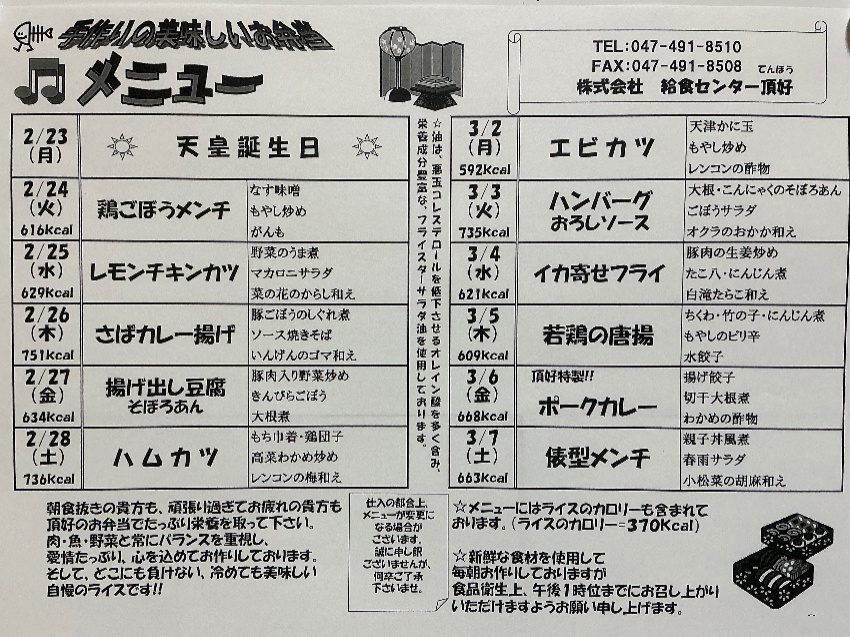 手作りの美味しいお弁当
メニュー
TEL:047-491-8510
FAX:047-491-8508
てんほう
株式会社 給食センター頂好
2/23
(月)
天皇誕生日
2/24
(火)
616Kcal
鶏ごぼうメンチ
なす味噌
もやし炒め
がんも
2/25
(水)
629Kcal
レモンチキンカツ
野菜のうま煮
マカロニサラダ
菜の花のからし和え
2/26
(木)
751Kcal
さばカレー揚げ
豚ごぼうのしぐれ煮
ソース焼きそば
いんげんのゴマ和え
2/27
(金)
634Kcal
揚げ出し豆腐
そぼろあん
豚肉入り野菜炒め
きんぴらごぼう
大根煮
2/28
(土)
736Kcal
ハムカツ
もち巾着・鶏団子
高菜わかめ炒め
レンコンの梅和え
☆油は、悪玉コレステロールを低下させるオレイン酸を多く含み、
栄養成分豊富な、フライスターサラダ油を使用しております。
3/2
(月)
592Kcal
エビカツ
天津かに玉
もやし炒め
レンコンの酢物
3/3
(火)
735Kcal
ハンバーグ
おろしソース
大根・こんにゃくのそぼろあん
ごぼうサラダ
オクラのおかか和え
3/4
(水)
621Kcal
イカ寄せフライ
豚肉の生姜炒め
たこ八・にんじん煮
白滝たらこ和え
3/5
(木)
609Kcal
若鶏の唐揚
ちくわ・竹の子・にんじん煮
もやしのピリ辛
水餃子
3/6
(金)
668Kcal
頂好特製!!
ポークカレー
揚げ餃子
切干大根煮
わかめの酢物
3/7
(土)
663Kcal
俵型メンチ
親子丼風煮
春雨サラダ
小松菜の胡麻和え
朝食抜きの貴方も、頑張り過ぎてお疲れの貴方も
頂好のお弁当でたっぷり栄養を取って下さい。
肉・魚・野菜と常にバランスを重視し、
愛情たっぷり、心を込めてお作りしております。
そして、どこにも負けない、冷めても美味しい
自慢のライスです!!
仕入の都合上、
メニューが変更に
なる場合が
ございます。
誠に申し訳
ございませんが、
何卒ご了承
下さいませ。
☆メニューにはライスのカロリーも含まれて
おります。(ライスのカロリー=370Kcal)
☆新鮮な食材を使用して
毎朝お作りしておりますが
食品衛生上、午後1時位までにお召し上がり
いただけますようお願い申し上げます。